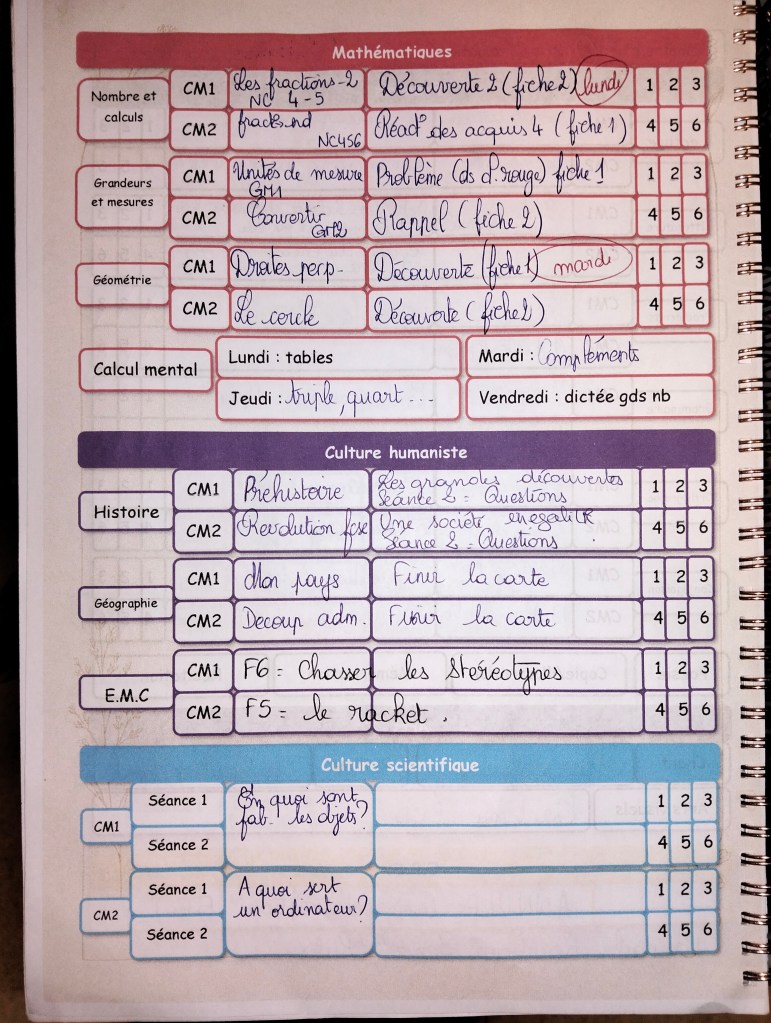 Mathématiques
Nombre et calculs
CM1 Les fractions-2 NC 4-5 Découverte 2 (fiche 2) lundi 1 2 3
CM2 fract° nd NC456 Réact° des acquis 4 (fiche 1) 4 5 6
Grandeurs et mesures
CM1 Unités de mesure GM1 Problème (ds d. rouge) fiche 1 1 2 3
CM2 Convertir GM2 Rappel (fiche 2) 4 5 6
Géométrie
CM1 Droites perp- Découverte (fiche 1) mardi 1 2 3
CM2 Le cercle Découverte (fiche 1) 4 5 6
Calcul mental
Lundi : tables Mardi : Compléments
Jeudi : triple, quart... Vendredi : dictée gds nb
Culture humaniste
Histoire
CM1 Préhistoire Les grandes découvertes 1 2 3
Séance 2 = Questions
CM2 Revolution fcse Une société 4 5 6
Séance 2 = Questions
Géographie
CM1 Mon pays Finir la carte 1 2 3
CM2 Decoup adm. Finir la carte 4 5 6
E.M.C
CM1 F6 = Chasser les stéréotypes 1 2 3
CM2 F5 = le racket. 4 5 6
Culture scientifique
CM1
Séance 1 En quoi sont fab. les objets? 1 2 3
Séance 2 4 5 6
CM2
Séance 1 A quoi sert un ordinateur? 1 2 3
Séance 2 4 5 6